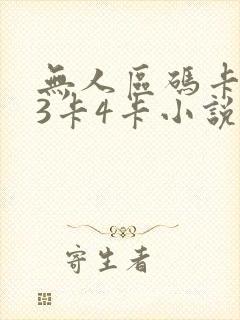 無人區碼卡
3卡4卡小說
寄生者